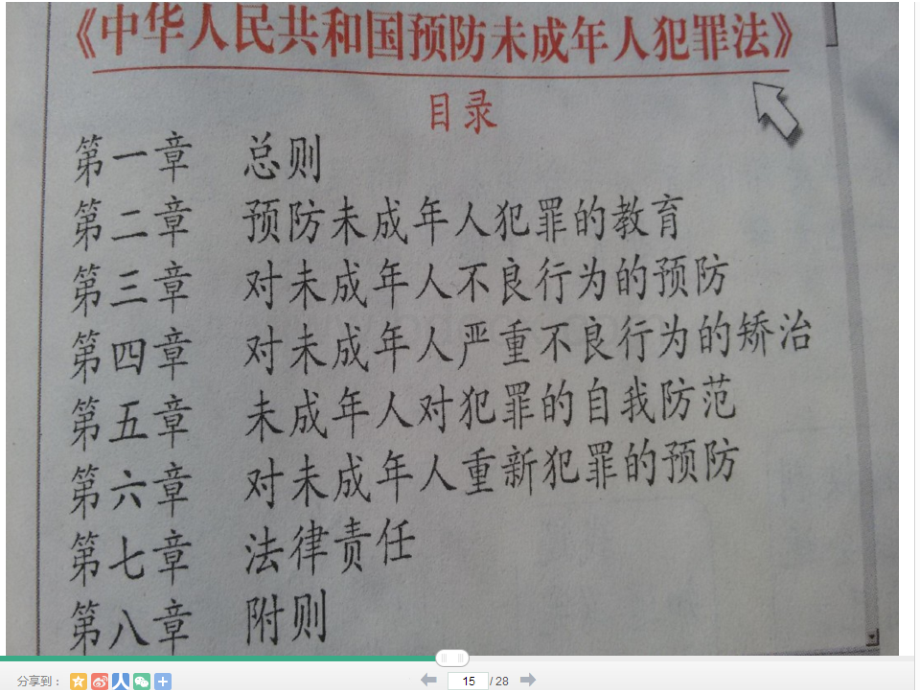 《中华人民共和国预防未成年人犯罪法》
目录
第一章 总则
第二章 预防未成年人犯罪的教育
第三章 对未成年人不良行为的预防
第四章 对未成年人严重不良行为的矫治
第五章 未成年人对犯罪的自我防范
第六章 对未成年人重新犯罪的预防
第七章 法律责任
第八章 附则
分享到：
15 / 28